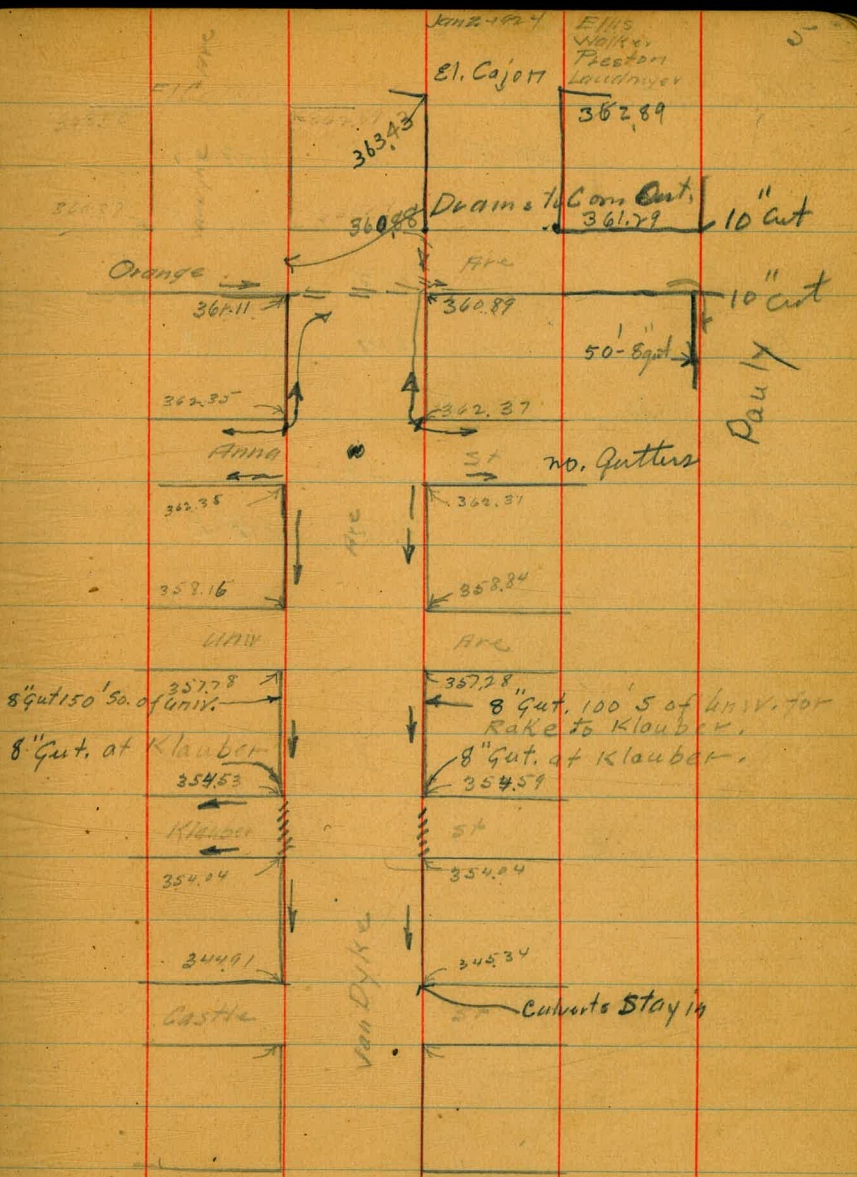 Jan 2-1924
Ellis
Walker
Preston
Laudmyer
5
El. Cajon
363.43
362.89
360.88
Drains to Com Out.
361.29
10" Cut
Orange
Ave
361.11
360.89
10" Cut
50'-8" gut
Pauly
362.35
362.37
Anna
St
no. Gutters
362.38
362.37
Ave
358.16
358.84
Univ
Ave
357.78
357.28
8" Gut 150' So. of Univ.
8" Gut. 100' S of Univ. for
Rake to Klauber.
8" Gut. at Klauber
8" Gut. at Klauber.
354.53
354.59
Klauber
St
354.04
354.04
Van Dyke
344.91
345.34
Castle
St
Culverts Stay in